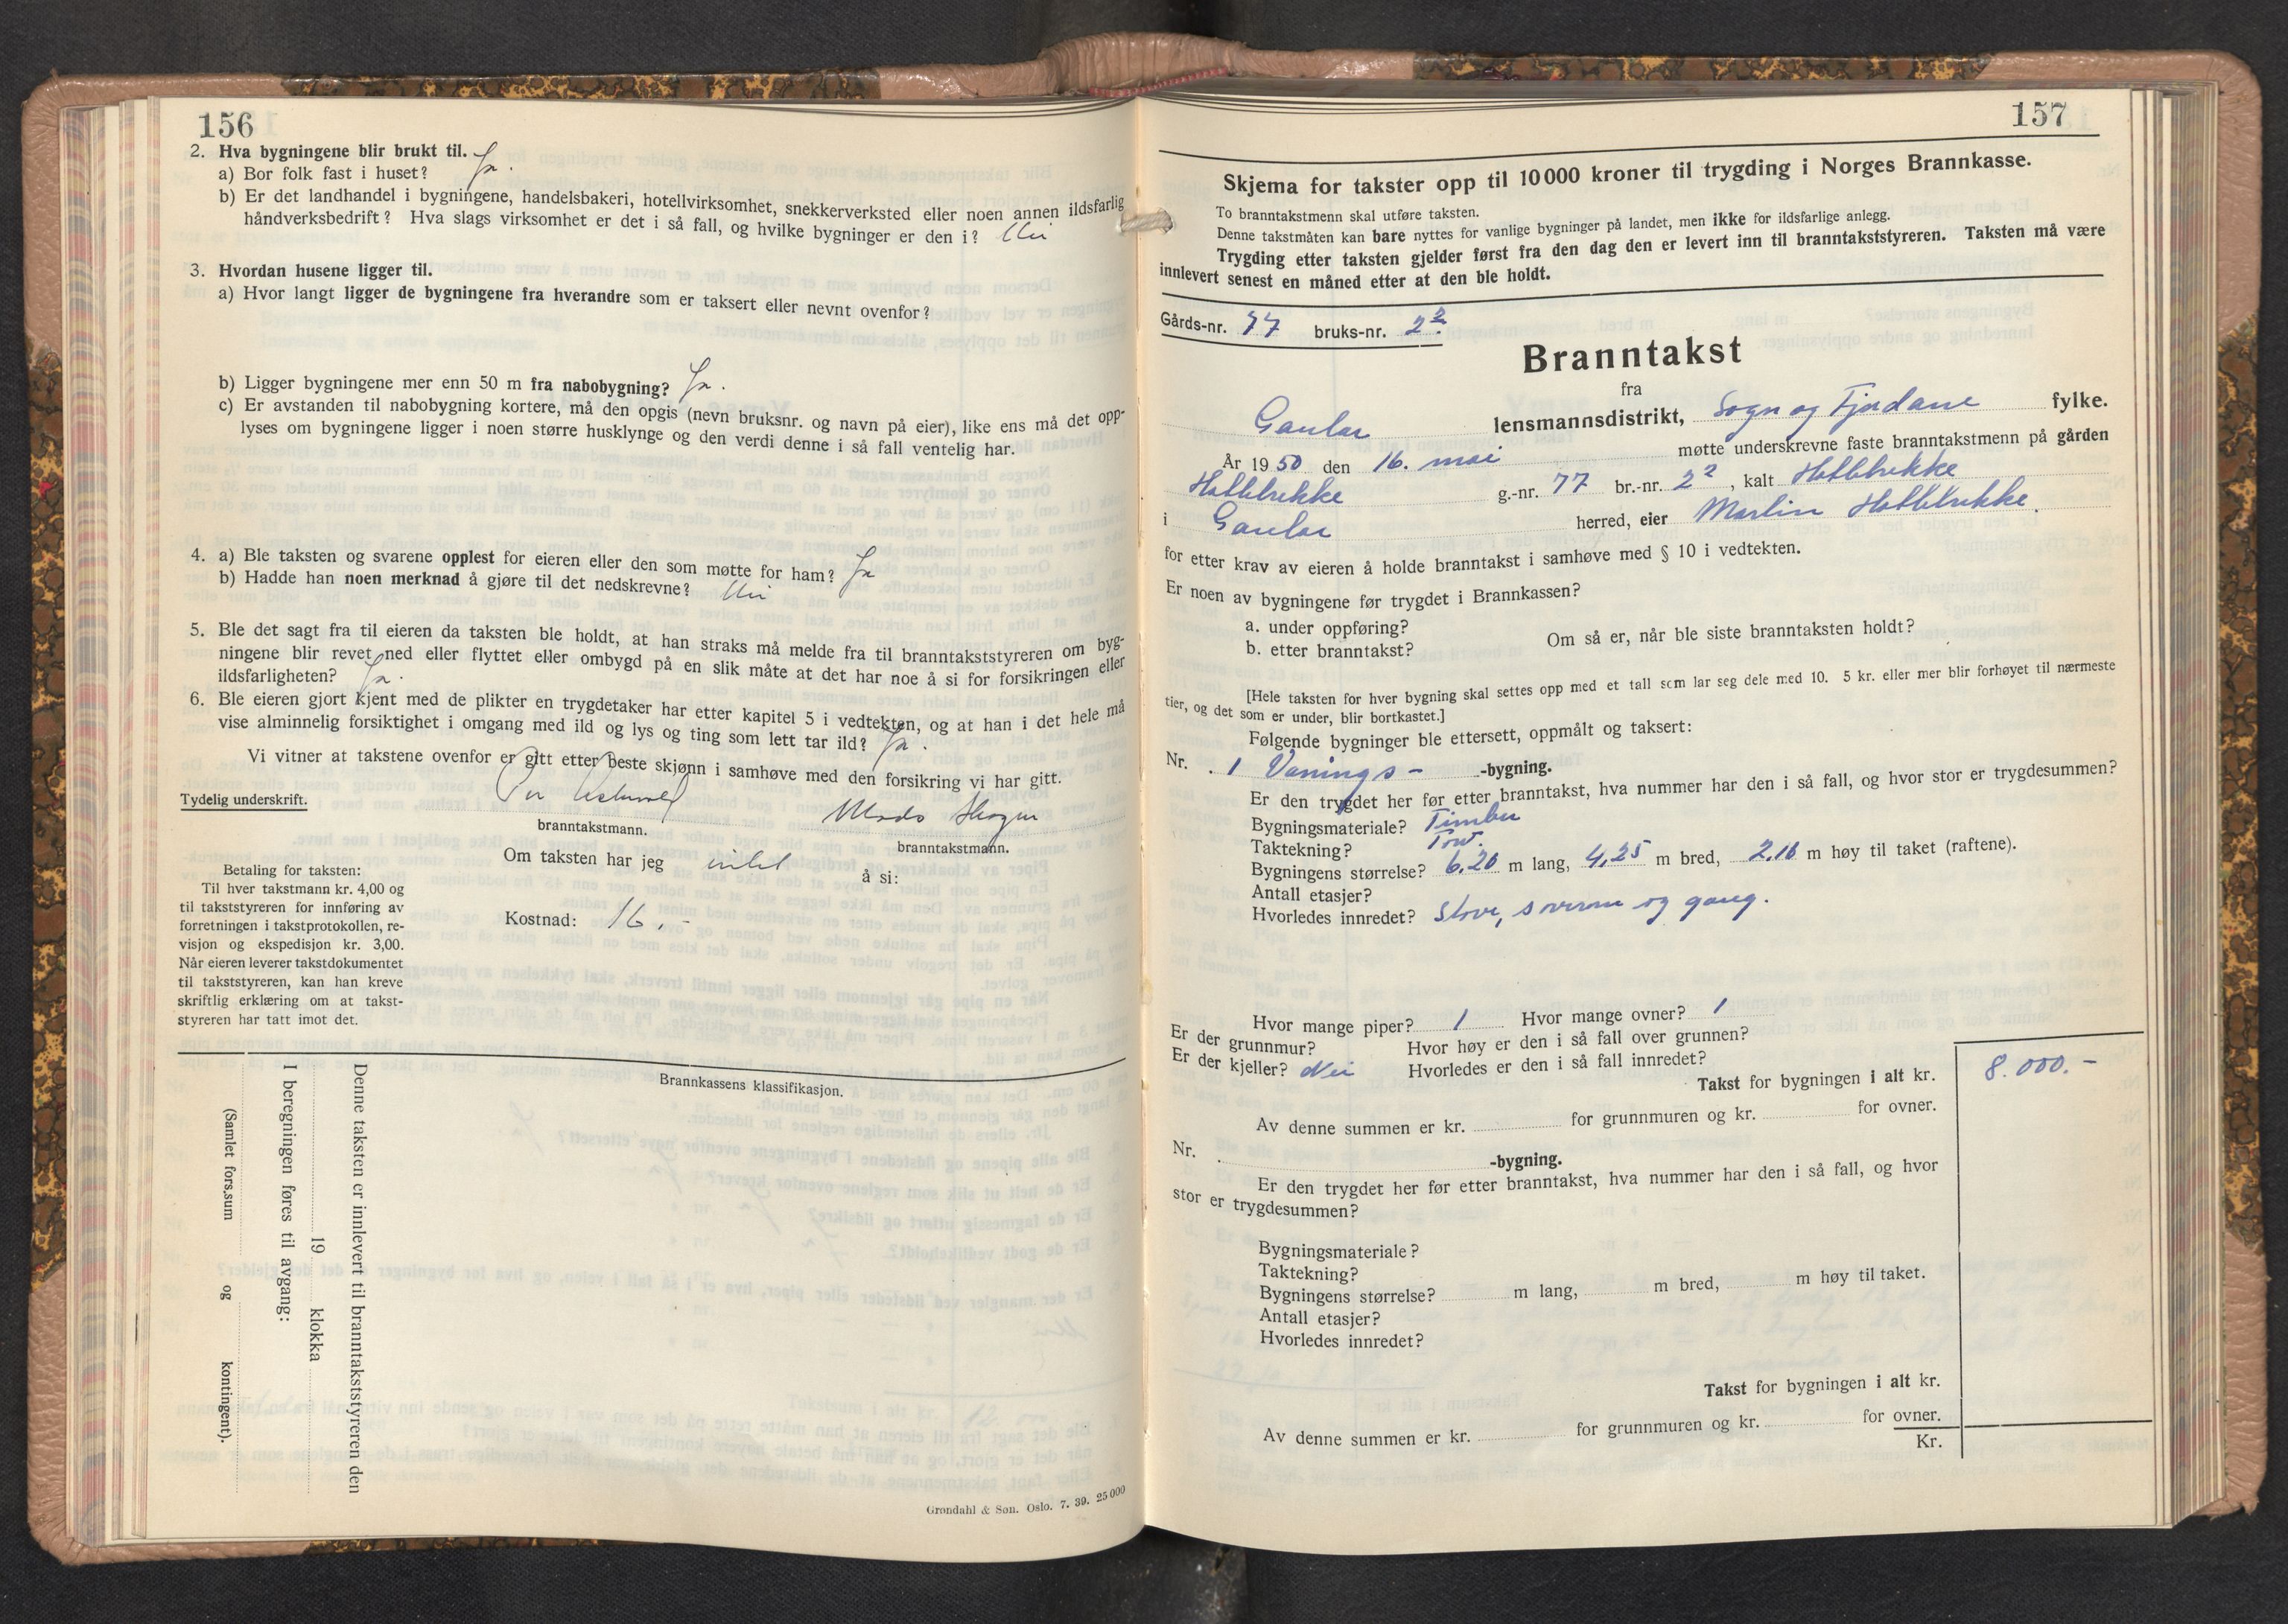 156
2. Hva bygningene blir brukt til.
a) Bor folk fast i huset? Ja.
b) Er det landhandel i bygningene, handelsbakeri, hotellvirksomhet, snekkerverksted eller noen annen ildsfarlig
håndverksbedrift? Hva slags virksomhet er det i så fall, og hvilke bygninger er den i? Nei
3. Hvordan husene ligger til.
a) Hvor langt ligger de bygningene fra hverandre som er taksert eller nevnt ovenfor?
b) Ligger bygningene mer enn 50 m fra nabobygning? Ja.
c) Er avstanden til nabobygning kortere, må den opgis (nevn bruksnr. og navn på eier), like ens må det opp-
lyses om bygningene ligger i noen større husklynge og den verdi denne i så fall ventelig har.
4. a) Ble taksten og svarene opplest for eieren eller den som møtte for ham? Ja
b) Hadde han noen merknad å gjøre til det nedskrevne? Nei
5. Ble det sagt fra til eieren da taksten ble holdt, at han straks må melde fra til branntakststyreren om byg-
ningene blir revet ned eller flyttet eller ombygd på en slik måte at det har noe å si for forsikringen eller
ildsfarligheten? Ja.
6. Ble eieren gjort kjent med de plikter en trygdetaker har etter kapitel 5 i vedtekten, og at han i det hele må
vise alminnelig forsiktighet i omgang med ild og lys og ting som lett tar ild? Ja.
Vi vitner at takstene ovenfor er gitt etter beste skjønn i samhøve med den forsikring vi har gitt.
Tydelig underskrift.
branntakstmann.
branntakstmann.
Om taksten har jeg intet å si:
Kostnad: 16,-
Betaling for taksten:
Til hver takstmann kr. 4,00 og
til takststyreren for innføring av
forretningen i takstprotokollen, re-
visjon og ekspedisjon kr. 3,00.
Når eieren leverer takstdokumentet
til takststyreren, kan han kreve
skriftlig erklæring om at takst-
styreren har tatt imot det.
Brannkassens klassifikasjon.
Denne taksten er innlevert til branntakststyreren den
19 klokka
I beregningen føres til avgang:
(Samlet fors.sum og kontingent).
Grøndahl & Søn. Oslo. 7. 39. 25 000
157
Skjema for takster opp til 10 000 kroner til trygding i Norges Brannkasse.
To branntakstmenn skal utføre taksten.
Denne takstmåten kan bare nyttes for vanlige bygninger på landet, men ikke for ildsfarlige anlegg.
Trygding etter taksten gjelder først fra den dag den er levert inn til branntakststyreren. Taksten må være
innlevert senest en måned etter at den ble holdt.
Gårds-nr. 77 bruks-nr. 2²
Branntakst
fra
Gaular lensmannsdistrikt, Sogn og Fjordane fylke.
År 1950 den 16. mai møtte underskrevne faste branntakstmenn på gården
Hatlebrekke g.-nr. 77 br.-nr. 2², kalt Hatlebrekke
i Gaular herred, eier Martin Hatlebrekke.
for etter krav av eieren å holde branntakst i samhøve med § 10 i vedtekten.
Er noen av bygningene før trygdet i Brannkassen?
a. under oppføring?
b. etter branntakst? Om så er, når ble siste branntaksten holdt?
[Hele taksten for hver bygning skal settes opp med et tall som lar seg dele med 10. 5 kr. eller mer blir forhøyet til nærmeste
tier, og det som er under, blir bortkastet.]
Følgende bygningér ble ettersett, oppmålt og taksert:
Nr. 1 Vånings- -bygning.
Er den trygdet her før etter branntakst, hva nummer har den i så fall, og hvor stor er trygdesummen?
Bygningsmateriale? Timber
Taktekning? Torv.
Bygningens størrelse? 6,20 m lang, 4,25 m bred, 2,10 m høy til taket (raftene).
Antall etasjer?
Hvorledes innredet? Stove, soverom og gang.
Hvor mange piper? 1 Hvor mange ovner? 1
Er der grunnmur? Hvor høy er den i så fall over grunnen?
Er der kjeller? Nei Hvorledes er den i så fall innredet?
Takst for bygningen i alt kr. 8.000.-
Av denne summen er kr. for grunnmuren og kr. for ovner.
Nr. -bygning.
Er den trygdet her før etter branntakst, hva nummer har den i så fall, og hvor
stor er trygdesummen?
Bygningsmateriale?
Taktekning?
Bygningens størrelse? m lang, m bred, m høy til taket.
Antall etasjer?
Hvorledes innredet?
Takst for bygningen i alt kr.
Av denne summen er kr. for grunnmuren og kr. for ovner.
Kr.